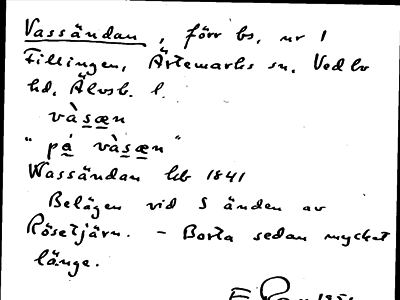 Vassändan, förr bs, nr 1
Fillingen, Ärtemarks sn, Vedbo
hd, Älvsb. l.
vàsæn
"på vàsæn"
Wassändan hb 1841
Belägen vid S änden av
Rösetjärn. - Borta sedan mycket
länge.